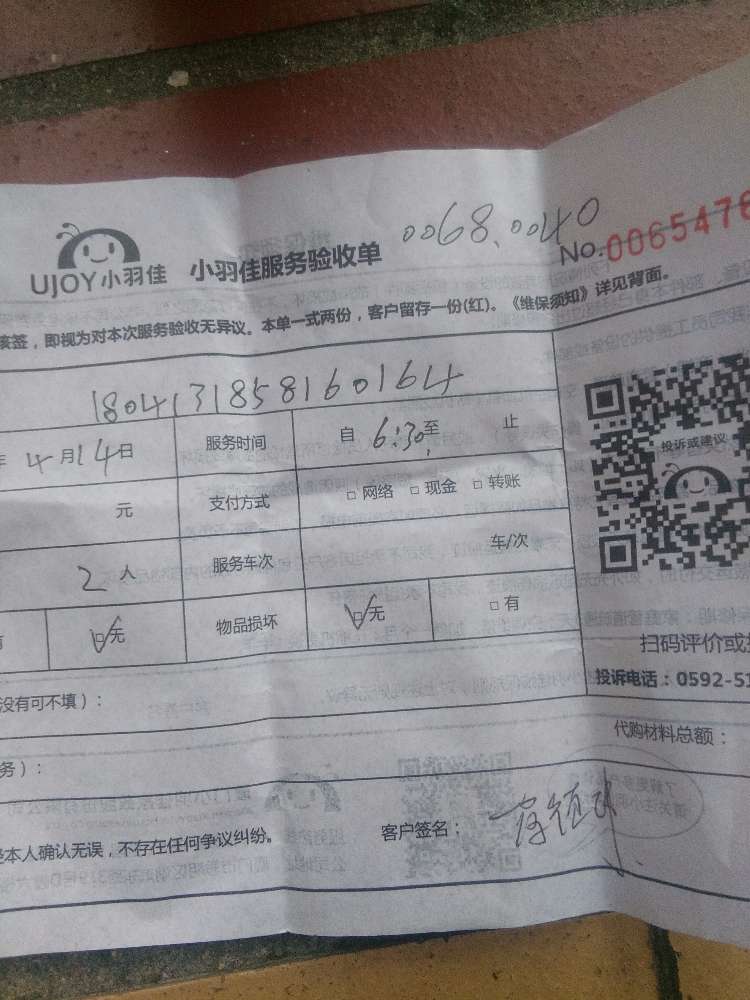 0068.0040
UJOY小羽佳 小羽佳服务验收单 No.0065476
核签，即视为对本次服务验收无异议。本单一式两份，客户留存一份(红)。《维保须知》详见背面。
180413185816016４
年 4月14日 服务时间 自 6:30 至 止
投诉或建议
元 支付方式 □ 网络 □ 现金 □ 转账
2 人 服务车次 车/次
有 □无 物品损坏 □无 □ 有
扫码评价或
没有可不填）：
投诉电话：0592-51
代购材料总额：
务）：
客户签名：
本人确认无误，不存在任何争议纠纷。